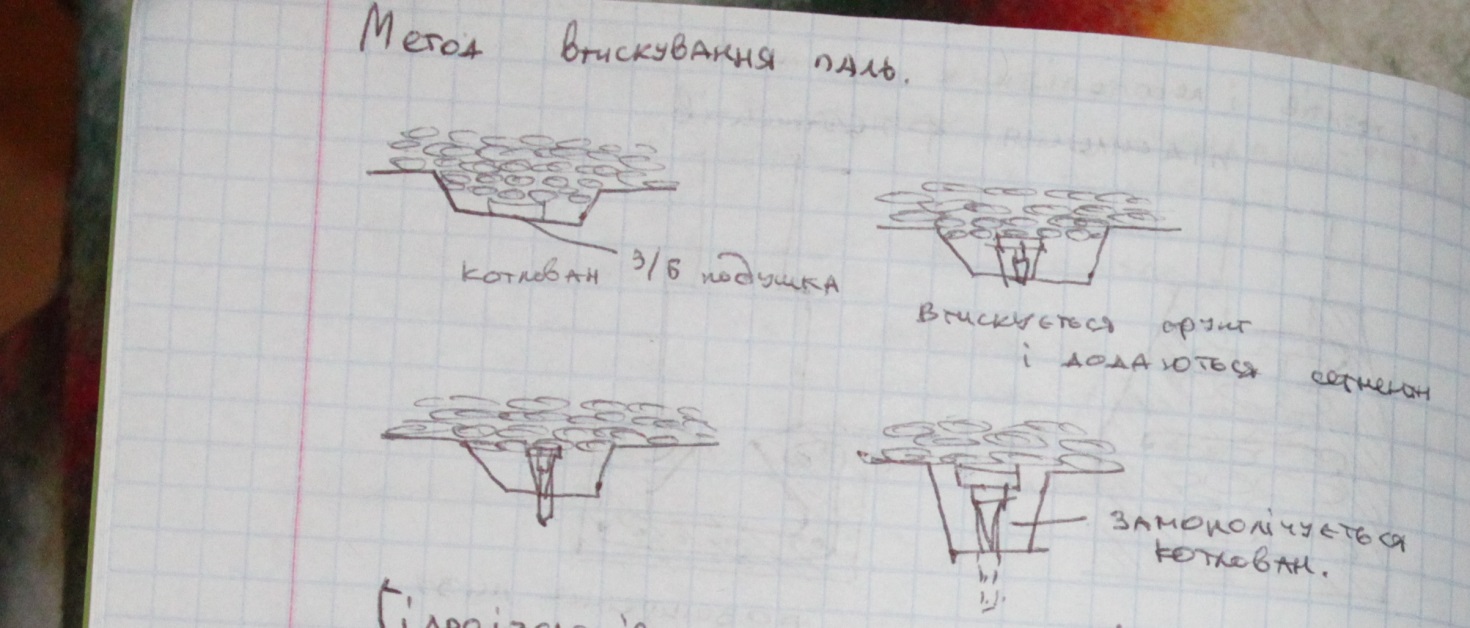 Метод втискування паль.
котлован з/б подушка
Втискується грунт
і додаються сегменти
замонолічується
котлован.
Гідроізоляція